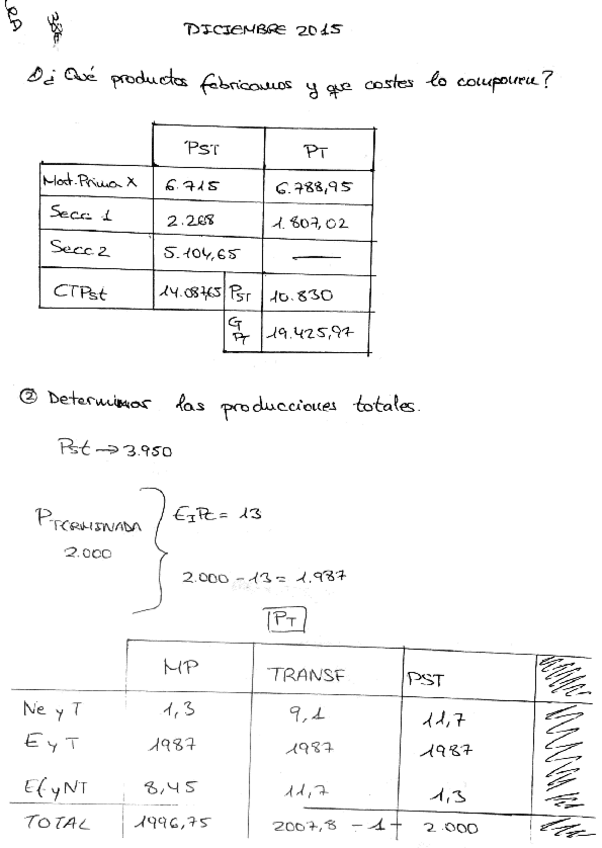 DICIEMBRE 2015
1) ¿ Qué productos fabricamos y que costes lo componen?
PST PT
Mat. Prima X 6.715 6.788,95
Secc 1 2.268 1.807,02
Secc 2 5.104,65 —
CTPst 14.087,65 PST 10.830
G PT 19.425,97
② Determinar las producciones totales.
Pst → 3.950
PTERMINADA
2.000
EIPC = 13
2.000 - 13 = 1.987
PT
MP TRANSF PST
Ne y T 1,3 9,1 11,7
E y T 1987 1987 1987
Ef y NT 8,45 11,7 1,3
TOTAL 1996,75 2007,8 - 1 - 2.000